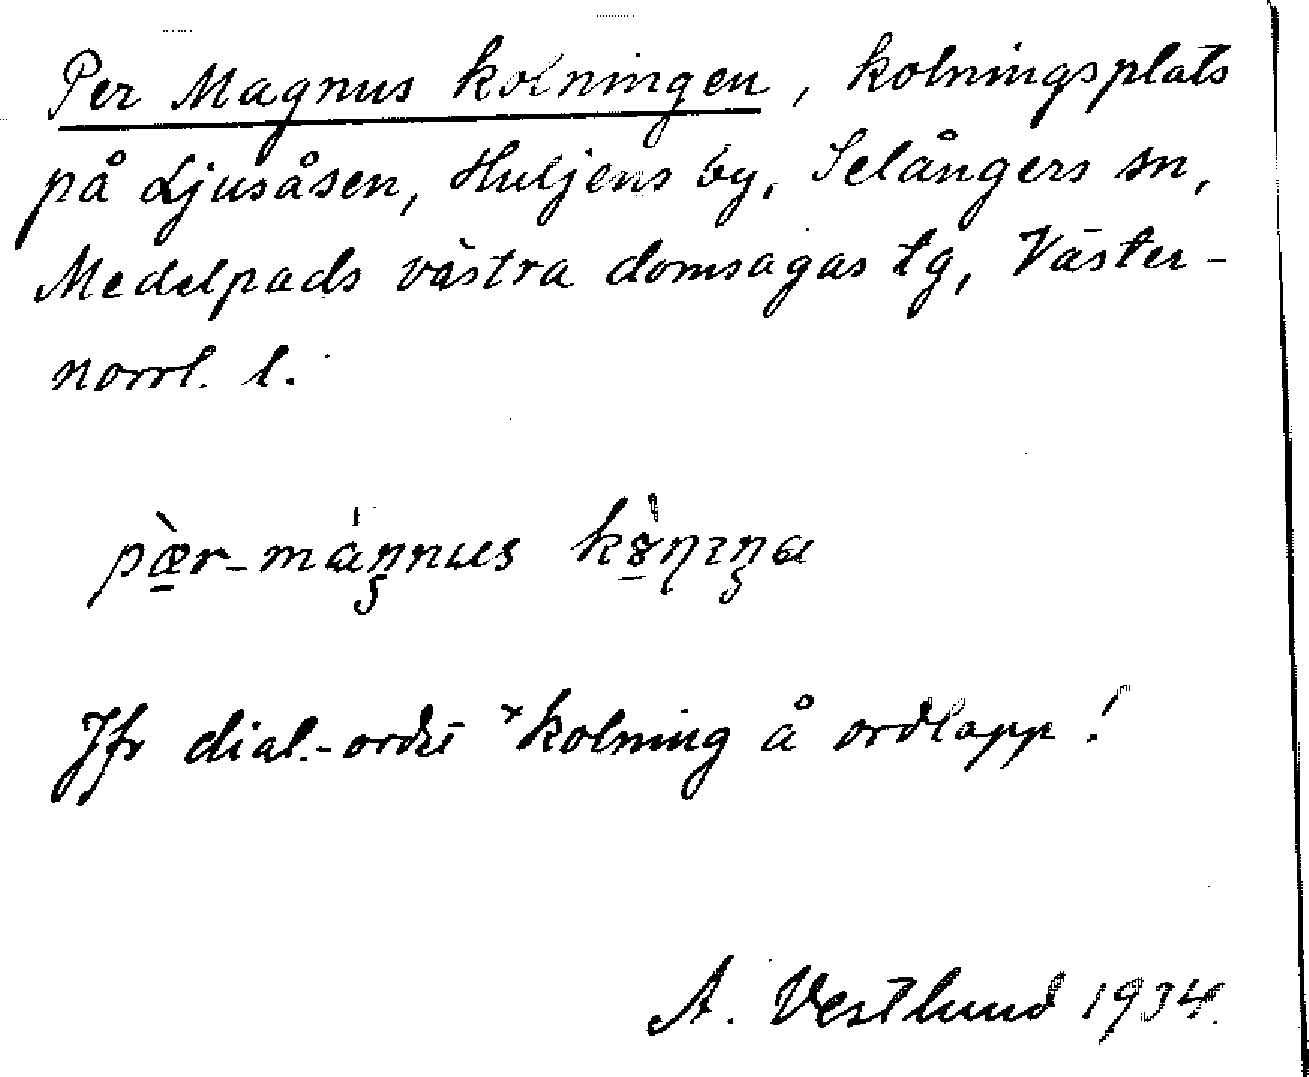 Per Magnus kolningen, kolningsplats
på Ljusåsen, Huljens by, Selångers sn,
Medelpads västra domsagas tg, Väster-
norrl. l.
pæ̀r-máŋnus
Jfr dial.-ordet *kolning å ordlapp!
A. Vestlund 1934.